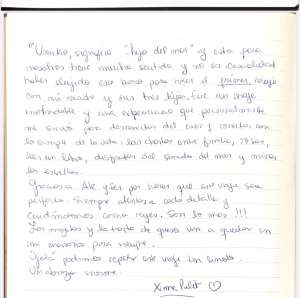 "Umiko, significa "hijo del mar" y esto para
nosotros tiene mucho sentido y no es casualidad
haber elegido ese barco para hacer el primer viaje
con mi madre y sus tres hijos. fue un viaje
inolvidable y una experiencia que personalmente
me sirvió para desconectar del caos y conectar con
lo simple de la vida: las charlas entre familia,
leer un libro, disfrutar del sonido del mar y mirar
las estrellas.
Gracias Ale y por hacer que este viaje sea
perfecto. Siempre atentos a cada detalle y
cuidándonos como reyes. Son lo mas !!!
Los mojitos y la tarta de queso van a quedar en
mi memoria para siempre.
Ojalá podamos repetir este viaje tan bonito.
Un abrazo enorme.